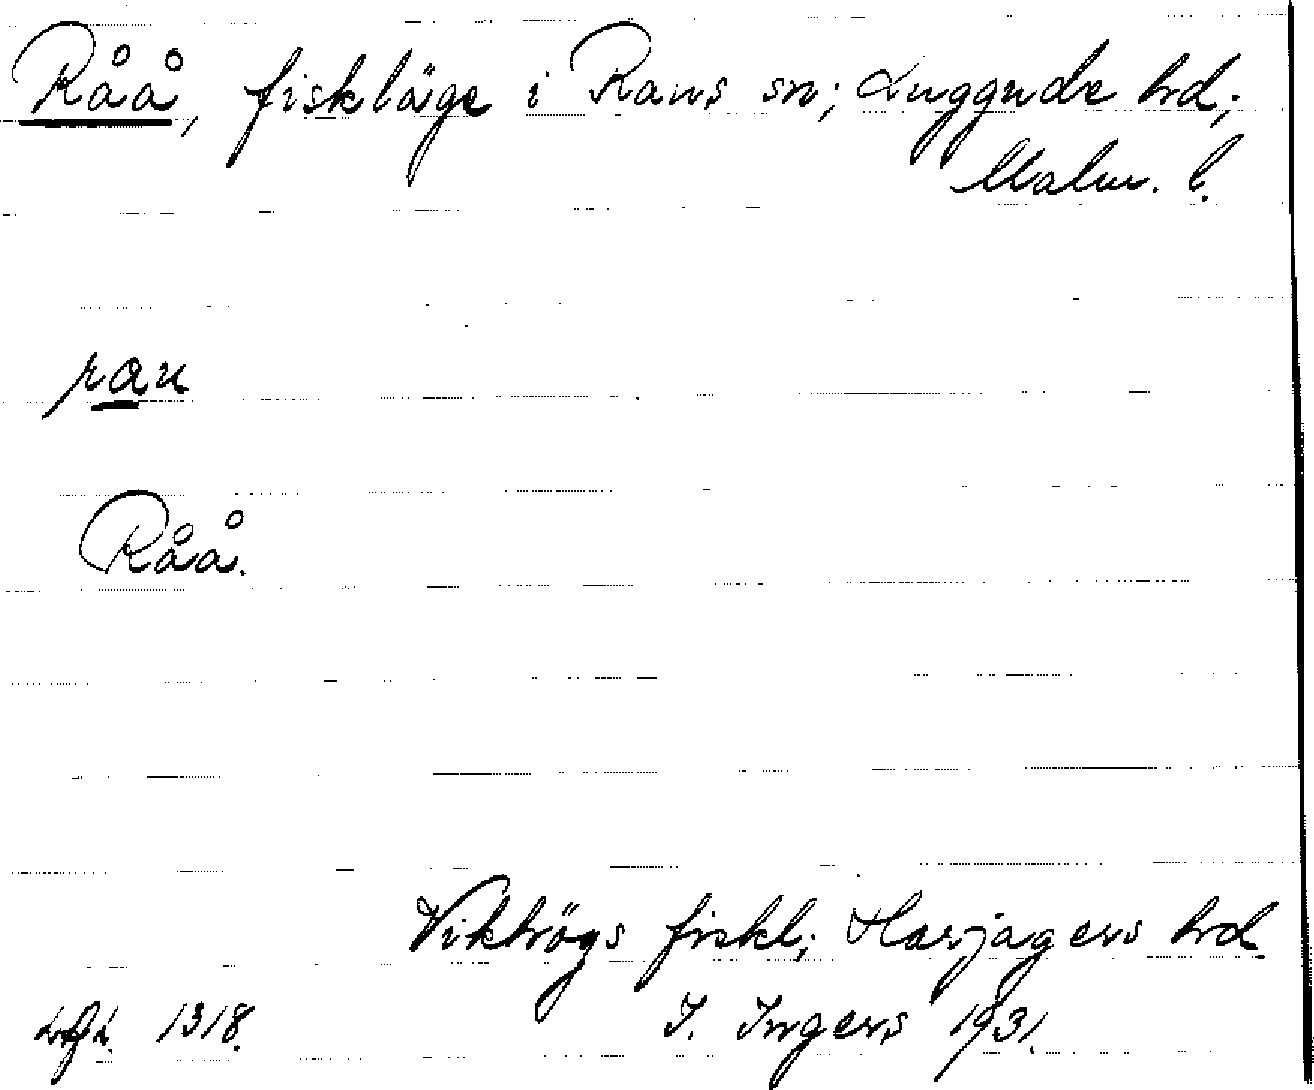 Råå, fiskläge i Raus sn; Luggude hd;
Malm. l.
rau
Råå.
Vikhögs fiskl; Harjagers hd
1318. I. Ingers 1931.